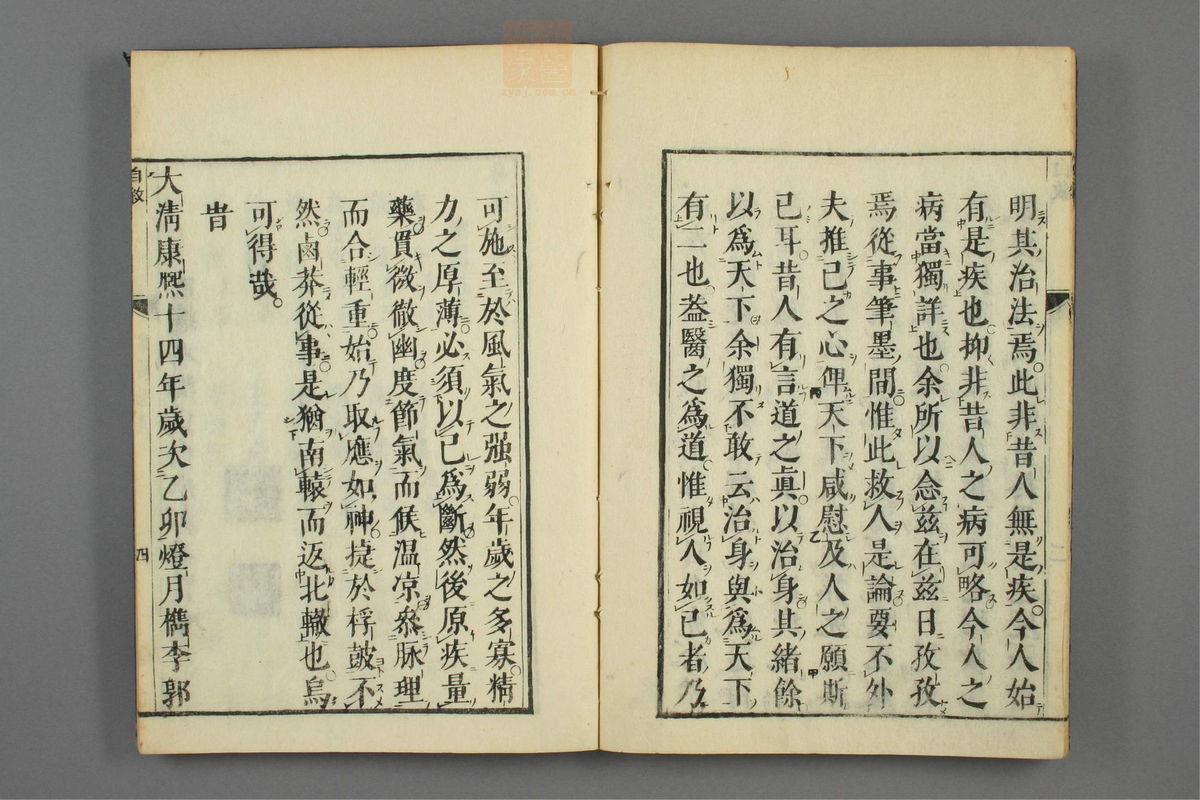 明其治法焉此非昔人無是疾今人始
有是疾也抑非昔人之病可略今人之
病當獨詳也余所以念茲在茲日孜孜
焉從事筆墨間惟此救人是論要不外
夫推己之心俾天下咸慰及人之願斯
已耳昔人有言道之眞以治身其緒餘
以爲天下余獨不敢云治身與爲天下
有二也葢醫之爲道惟視人如己者乃
可施至於風氣之强弱年歲之多寡精
力之厚薄必須以己爲斷然後原疾量
藥貫微徹幽度節氣而候温凉叅脉理
而合輕重始乃取應如神捷於桴皷不
然鹵莽從事是猶南轅而返北轍也烏
可得哉
旹
大淸康熈十四年歲次乙卯燈月檇李郭
自敘
四
zysj.com.cn